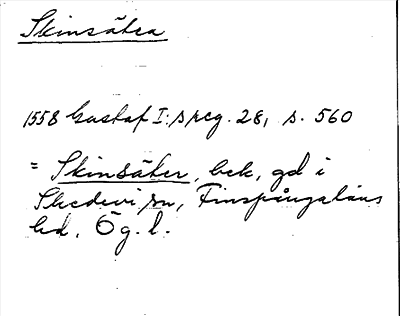 Skinsätra
1558 Gustaf I:s reg. 28, s. 560
= Skinsäter, bek, gd i
Skedevi sn, Finspångaläns
hd, Ög. l.